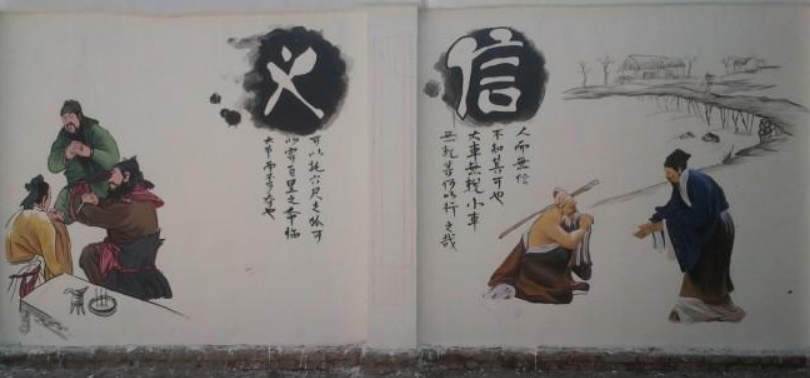 义
可以托六尺之孤可
以寄百里之命临
大节而不可夺也
信
人而無信
不知其可也
大車無輗小車
無軏其何以行之哉